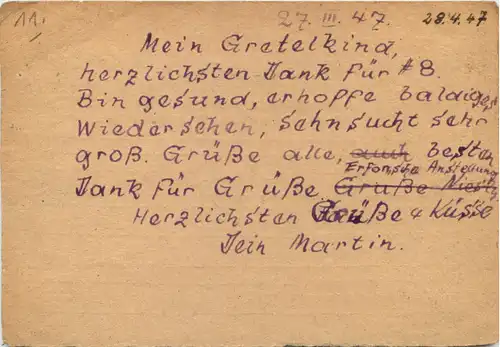 11. 27. III. 47. 28.4.47
Mein Gretelkind,
herzlichsten Dank für #8.
Bin gesund, erhoffe baldiges
Wiedersehen, sehnsucht sehr
groß. Grüße alle, auch besten
Erforsche Anstellung
Dank für Grüße Grüße
Herzlichsten Grüße + Küsse
Dein Martin.